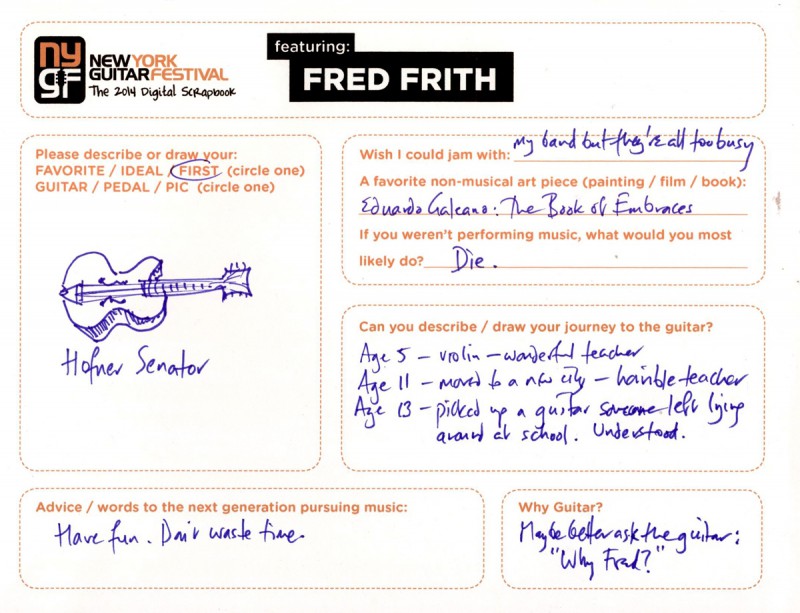 ny
gf
NEWYORK
GUITARFESTIVAL
The 2014 Digital Scrapbook
featuring:
FRED FRITH
Please describe or draw your:
FAVORITE / IDEAL / FIRST (circle one)
GUITAR / PEDAL / PIC (circle one)
Hofner Senator
Wish I could jam with: My band but they're all too busy
A favorite non-musical art piece (painting / film / book):
Eduardo Galeano: The Book of Embraces
If you weren't performing music, what would you most
likely do? Die.
Can you describe / draw your journey to the guitar?
Age 5 – violin – wonderful teacher
Age 11 – moved to a new city – horrible teacher
Age 13 – picked up a guitar someone left lying
around at school. Understood.
Advice / words to the next generation pursuing music:
Have fun. Don't waste time.
Why Guitar?
Maybe better ask the guitar:
"Why Fred?"